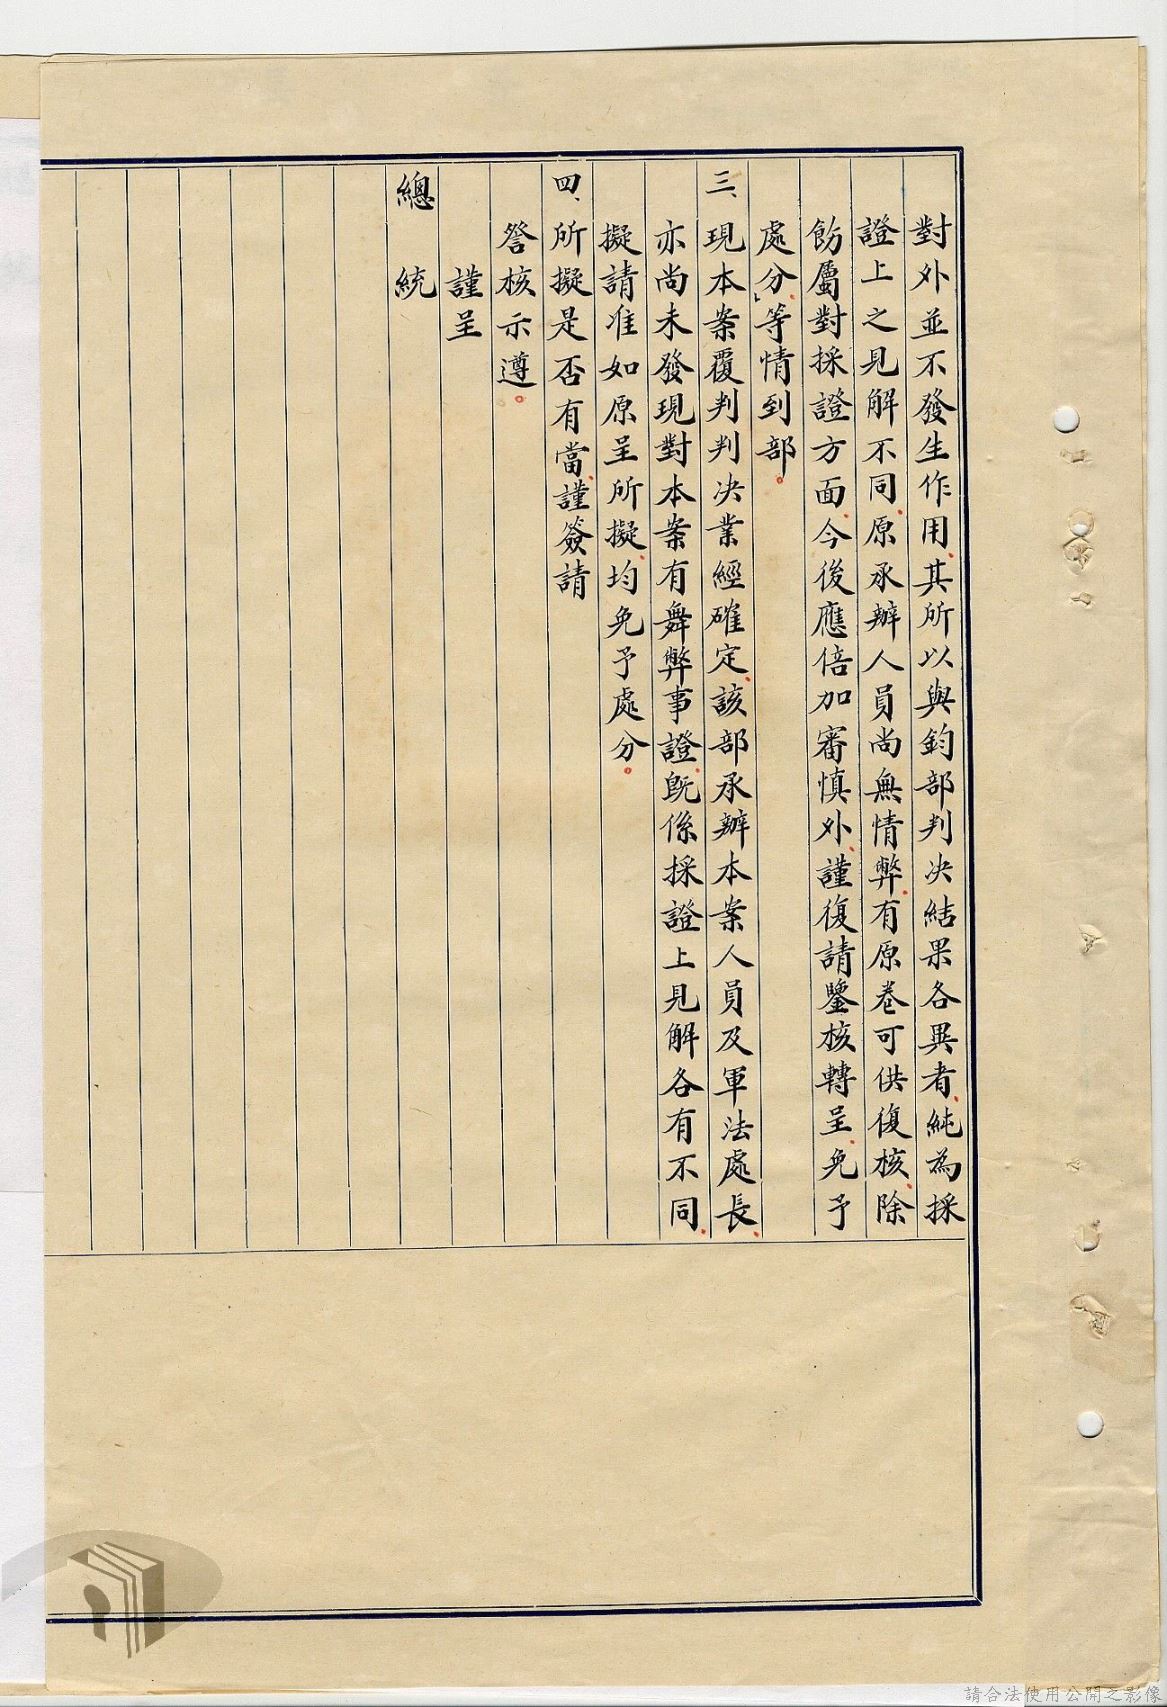 對外並不發生作用、其所以與鈞部判决結果各異者、純為採
證上之見解不同、原承辦人員尚無情弊、有原卷可供復核、除
飭屬對採證方面、今後應倍加審慎外、謹復請鑒核轉呈、免予
處分、」等情到部。
三、現本案覆判判决業經確定、該部承辦本案人員及軍法處長、
亦尚未發現對本案有舞弊事證、既係採證上見解各有不同、
擬請准如原呈所擬、均免予處分。
四、所擬是否有當、謹簽請
詧核示遵。
謹呈
總統
請合法使用公開之影像